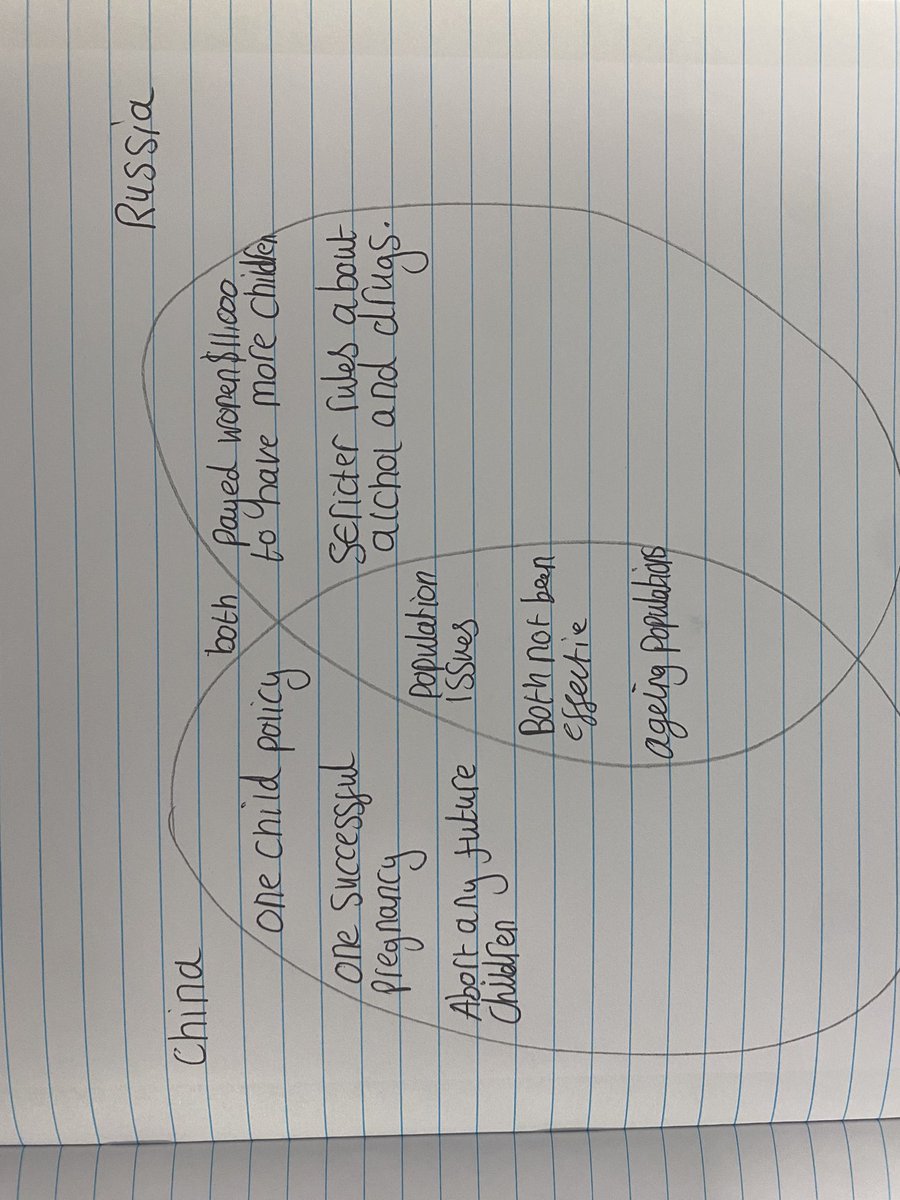 China
both
Russia
one child policy
one successful
pregnancy
Abort any future
children
population
issues
Both not been
effectie
ageing populations
payed women $11,000
to have more children
stricter rules about
alchol and drugs.